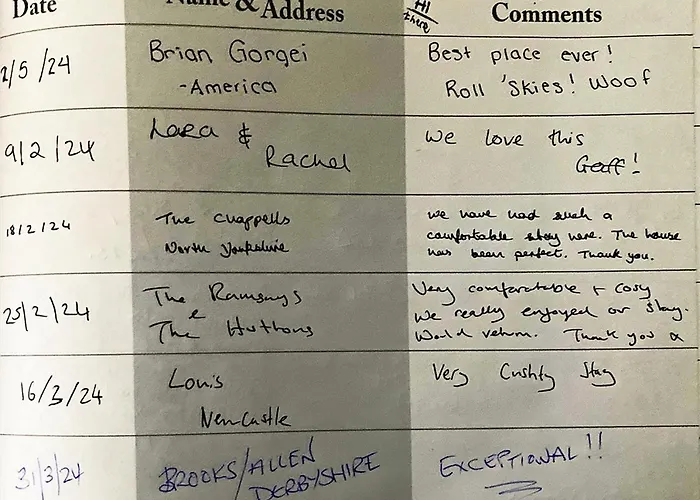 Date Name & Address HI there Comments
2/5/24 Brian Gorgei Best place ever!
-America Roll 'Skies! Woof
9/2/24 Lara & We love this
Rachel Gaff!
18/2/24 The Chappells we have had such a
North Yorkshire comfortable stay here. The house
has been perfect. Thank you.
25/2/24 The Ramsays Very comfortable + cosy
e We really enjoyed or stay.
The Huttons Would return. Thank you
16/3/24 Louis Very Cushty Stay
Newcastle
31/3/24 BROOKS/ALLEN EXCEPTIONAL!!
DERBYSHIRE